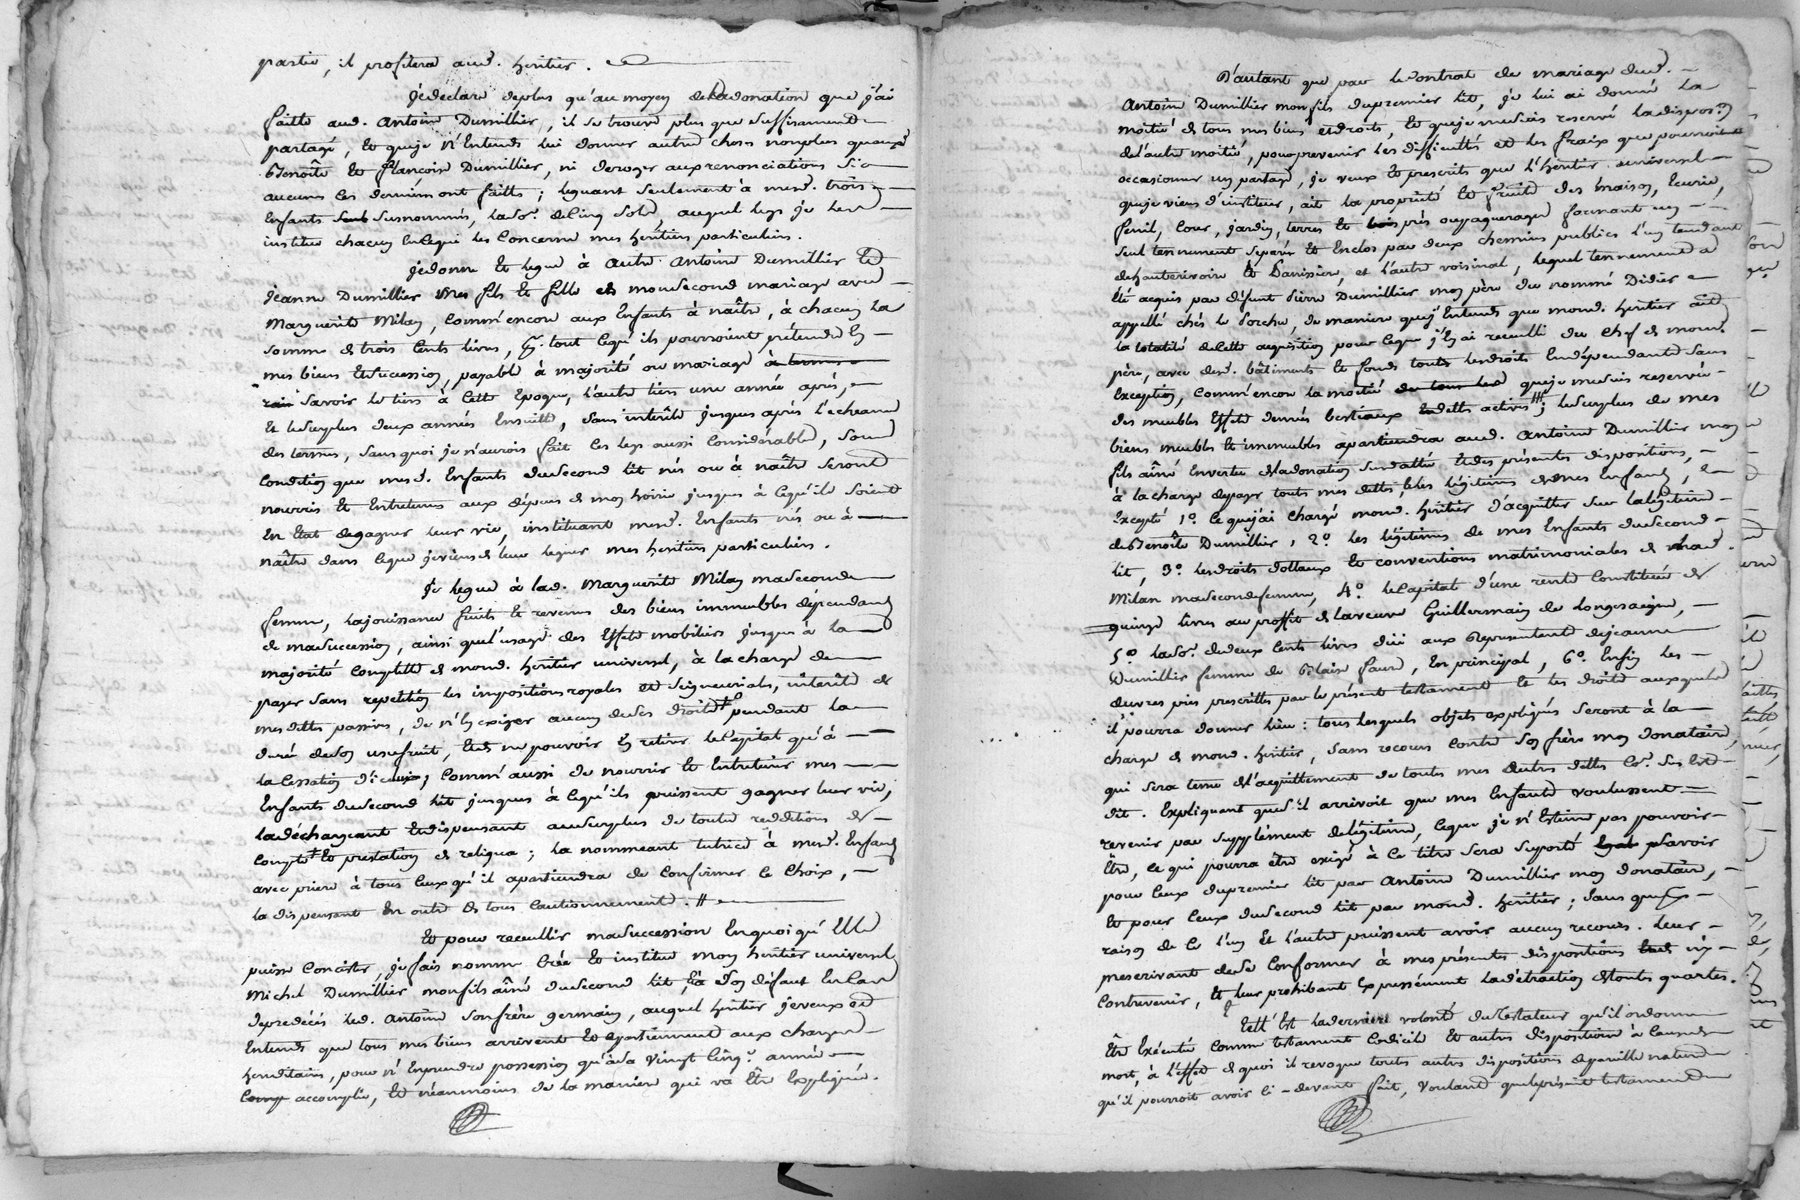 partie, il profitera aud. heritier.
Je declare de plus qu'au moyen de la donation que j'ai
faitte aud. Antoine Dumillier, il se trouve plus que suffisament
partagé, et que je n'Entends lui donner autre chose non plus qu'aux d.
Benoîte et françoise Dumillier, ni deroger aux renonciations si
aucunes les dernieres ont faitte; leguant seulement à mesd. trois
Enfants susnommés, la so. de cinq sols, auquel legs je les
institue chacun en ce qui les concerne mes heritiers particuliers.
Je donne et legue à autre Antoine Dumillier et
Jeanne Dumillier mes fils et fille de mon second mariage avec
Marguerite Milan, comm'encore aux Enfants à naître, à chacun la
somme de trois cents livres, p. tout ce qu'ils pourroient prétendre en
mes biens et succession, payable à majorité ou mariage
savoir le tiers à cette Epoque, l'autre tiers une année après,
Et le surplus deux années Ensuitte, sans intérêts jusques après l'echeance
des termes, sans quoi je n'aurois fait ces legs aussi considérable, sous
condition que mesd. Enfants du second lit nés ou à naître seront
nourris et Entretenus aux dépens de mon hoirie jusques à ce qu'ils soient
En Etat de gagner leur vie, instituant mesd. Enfants nés ou à
naître dans ce que je viens de leur leguer mes heritiers particuliers.
Je legue à lad. Marguerite Milan ma seconde
femme, la jouissance fruits et revenus des biens immeubles dépendants
de ma succession, ainsi que l'usage des Effets mobiliers jusques à la
majorité complette de mond. heritier universel, à la charge de
payer sans repetition les impositions royales et seigneuriales, intérêts de
mes dettes passives, de n'En exiger aucun de ses droits pendant la
durée de son usufruit, Et de ne pouvoir En retirer le capital qu'à
la cessation d'iceux; comm'aussi de nourrir Et Entretenir mes
Enfants du second lit jusques à ce qu'ils puissent gagner leur vie,
la déchargeant Et dispensant au surplus de toute redditions de
compte et prestation de reliqua; la nommeant tutrice à mesd. Enfants
avec priere à tous ceux qu'il apartiendra de confirmer ce choix,
la dispensant En outre de tous cautionnements. #
Et pour recuellir ma succession En quoi qu'Elle
puisse consister, je fais nomme Crée et institue mon heritier universel
Michel Dumillier mon fils ainé du second lit, Et à son défaut En cas
de predécés led. Antoine son frère germain, auquel heritier je veux et
Entends que tous mes biens arrivent et apartiennent aux charges
hereditaires, pour n'En prendre possession qu'à sa vingt cinq.e année
accomplie, Et néanmoins de la maniere qui va Etre Expliquée.
D'autant que par le contrat de mariage dud.
Antoine Dumillier mon fils du premier lit, je lui ai donné la
moitié de tous mes biens et droits, Et que je me suis reservé la dispos.on
de l'autre moitié, pour prevenir les difficultés et les fraix que pourroient
occasionner un partage, je veux et prescrits que l'héritier universel
que je viens d'instituer, ait la propriété et fruits des maison, Ecurie,
fenil, cour, jardin, terres et prés ou paquerages formant un
seul tennement séparé Et Enclos par deux chemins publics l'un tendant
de hauterivoire et l'autre voisinal, lequel tennement a
été acquis par défunt Pierre Dumillier mon père du nommé Didier
appellé chés le Porche, de maniere que j'Entends que mond. heritier ait
la totalité de cette acquisition pour ce que j'En ai recuelli du chef de mond.
père, avec desd. bâtiments Et fonds touts les droits Endépendants sans
Exception, comm'encore la moitié que je me suis reservée
des meubles Effets denrées bestiaux Et dettes actives #; le surplus de mes
biens meubles Et immeubles apartiendra aud. Antoine Dumillier mon
fils aîné En vertu de la donation susdatée Et des présentes dispositions,
à la charge de payer toutes mes dettes, Et les légitimes de mes Enfants,
Excepté 1.o ce que j'ai chargé mond. heritier d'acquitter sur la légitime
de Benoîte Dumillier, 2.o les légitimes de mes Enfants du second
lit, 3.o les droits dottaux Et conventions matrimoniales de lad.
Milan ma seconde femme, 4.o le capital d'une rente constituée de
quinze livres au proffit de la veuve Guillermain de Longesaigne,
5.o la so. de deux cents livres düe aux Representants de jeanne
Dumillier femme de Blaise faure, En principal, 6.o Enfin les
œuvres pies prescrittes par le présent testament Et les droits auxquels
il pourra donner lieu: tous lesquels objets expliqués seront à la
charge de mond. heritier, sans recours contre son frère mon donataire,
qui sera tenu de l'acquittement de toutes mes autres dettes co. sus est
dit. Expliquant que s'il arrivoit que mes Enfants voulussent
revenir par supplément de légitime, ce que je n'Estime pas pouvoir
être, ce qui pourra être exigé à ce titre sera suporté savoir
pour ceux du premier lit par Antoine Dumillier mon donataire,
Et pour ceux du second lit par mond. heritier; sans que p.
raison de ce l'un Et l'autre puissent avoir aucun recours. Leur
prescrivant de se conformer à mes présentes dispositions ni
contrevenir, Et leur prohibant Expressément la détraction de toutes quartes.
telle Est la derniere volonté du Testateur qu'il ordonne
Etre Exécutée comme testament Codicile Et autres disposition à cause de
mort, à l'Effet de quoi il revoque toutes autres dispositions de pareille nature
qu'il pourroit avoir ci-devant fait, voulant que le présent testament